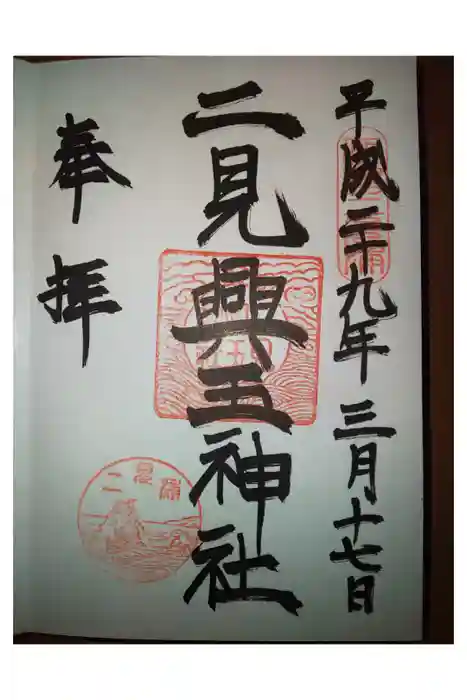 平成二十九年三月十七日
二見興玉神社
奉拝
二見浦